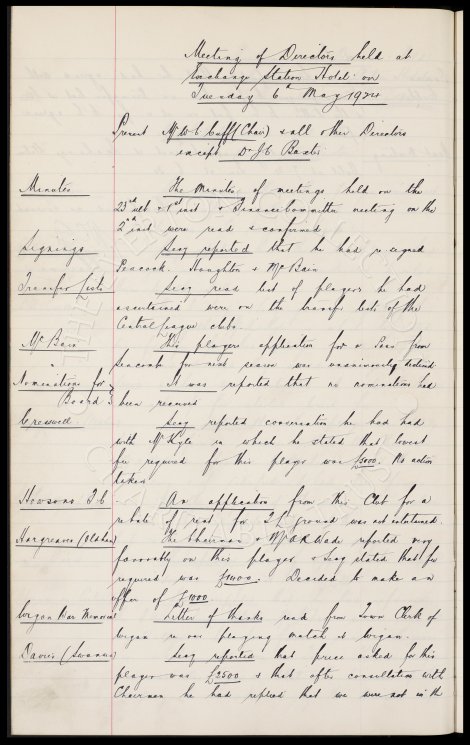 Meeting of Directors held at
Exchange Station Hotel on
Tuesday 6th May 1924
Present Mr W C Cuff (Chair) & all other Directors
except Dr J C Baxter
Minutes
The Minutes of meetings held on the
23rd ult & 1st inst & Finance Committee meeting on the
2nd inst were read & confirmed
Signings
Secy reported that he had re-signed
Peacock, Houghton & McBain
Transfer Lists
Secy read list of players he had
ascertained were on the transfer lists of the
Central League clubs.
McBain
This players application for a Pass from
Seacombe for next season was unanimously
Nominations for
Board
It was reported that no nominations had
been received
Creswell
Secy reported conversation he had had
with Mr Kyle in which he stated that lowest
fee required for this player was £5000. No action
taken
Howsons F.C
An application from this Club for a
rebate of rent for ground was not entertained.
Hargreaves (Oldham)
The Chairman & Mr A R Wade reported very
favorably on this player & Secy stated that fee
required was Decided to make an
offer of £1000.
Wigan War Memorial
Letter of thanks read from Town Clerk of
Wigan re our playing match at Wigan.
Davies (Swansea)
Secy reported that price asked for this
player was £2500 & that after consultation with
Chairman he had replied that we were not in th